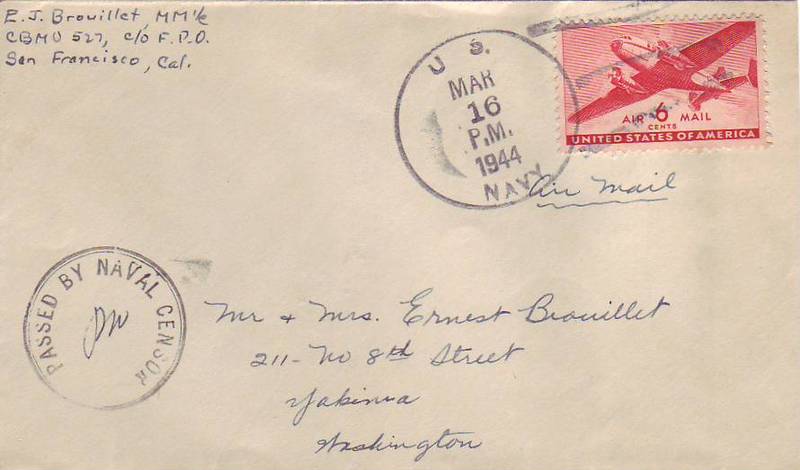 E. J. Brouillet, MM1/c
CBMU 527, c/o F.P.O.
San Francisco, Cal.
U. S.
MAR
16
P.M.
1944
NAVY
AIR 6 MAIL
CENTS
UNITED STATES OF AMERICA
Air Mail
PASSED BY NAVAL CENSOR
Mr + Mrs. Ernest Brouillet
211- No 8th Street
Yakima
Washington